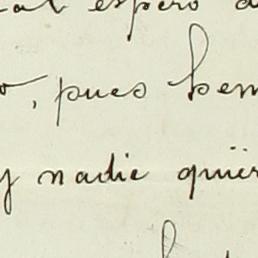 espero
, pues hem
y nadie quier